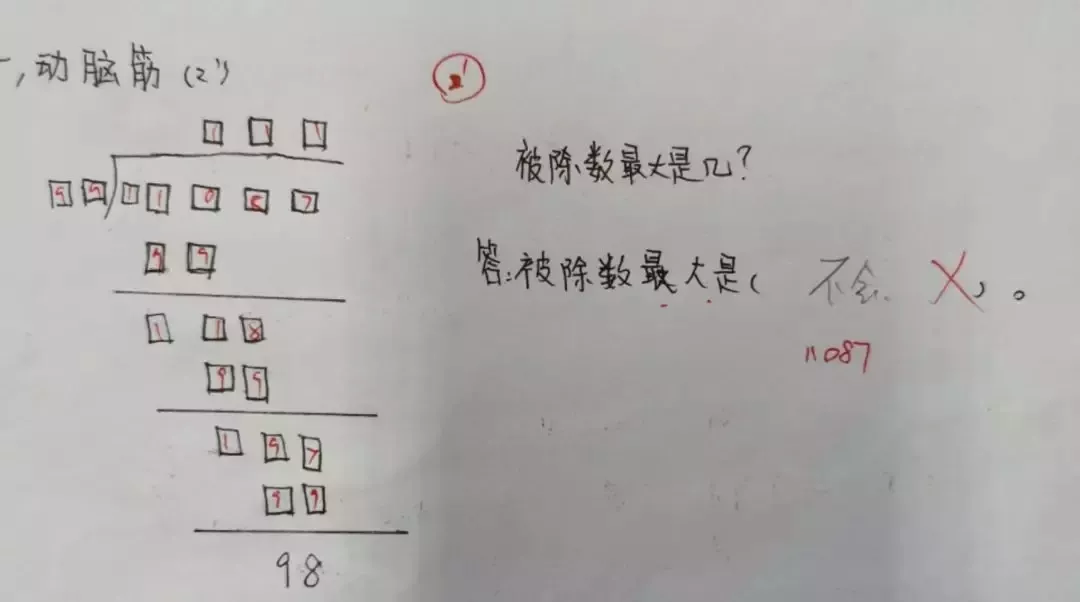 一,动脑筋(2')
2'
1 1 1
9 9 1 1 0 8 7
9 9
1 1 8
9 9
1 9 7
9 9
98
被除数最大是几?
答:被除数最大是( 不会 )。
11087